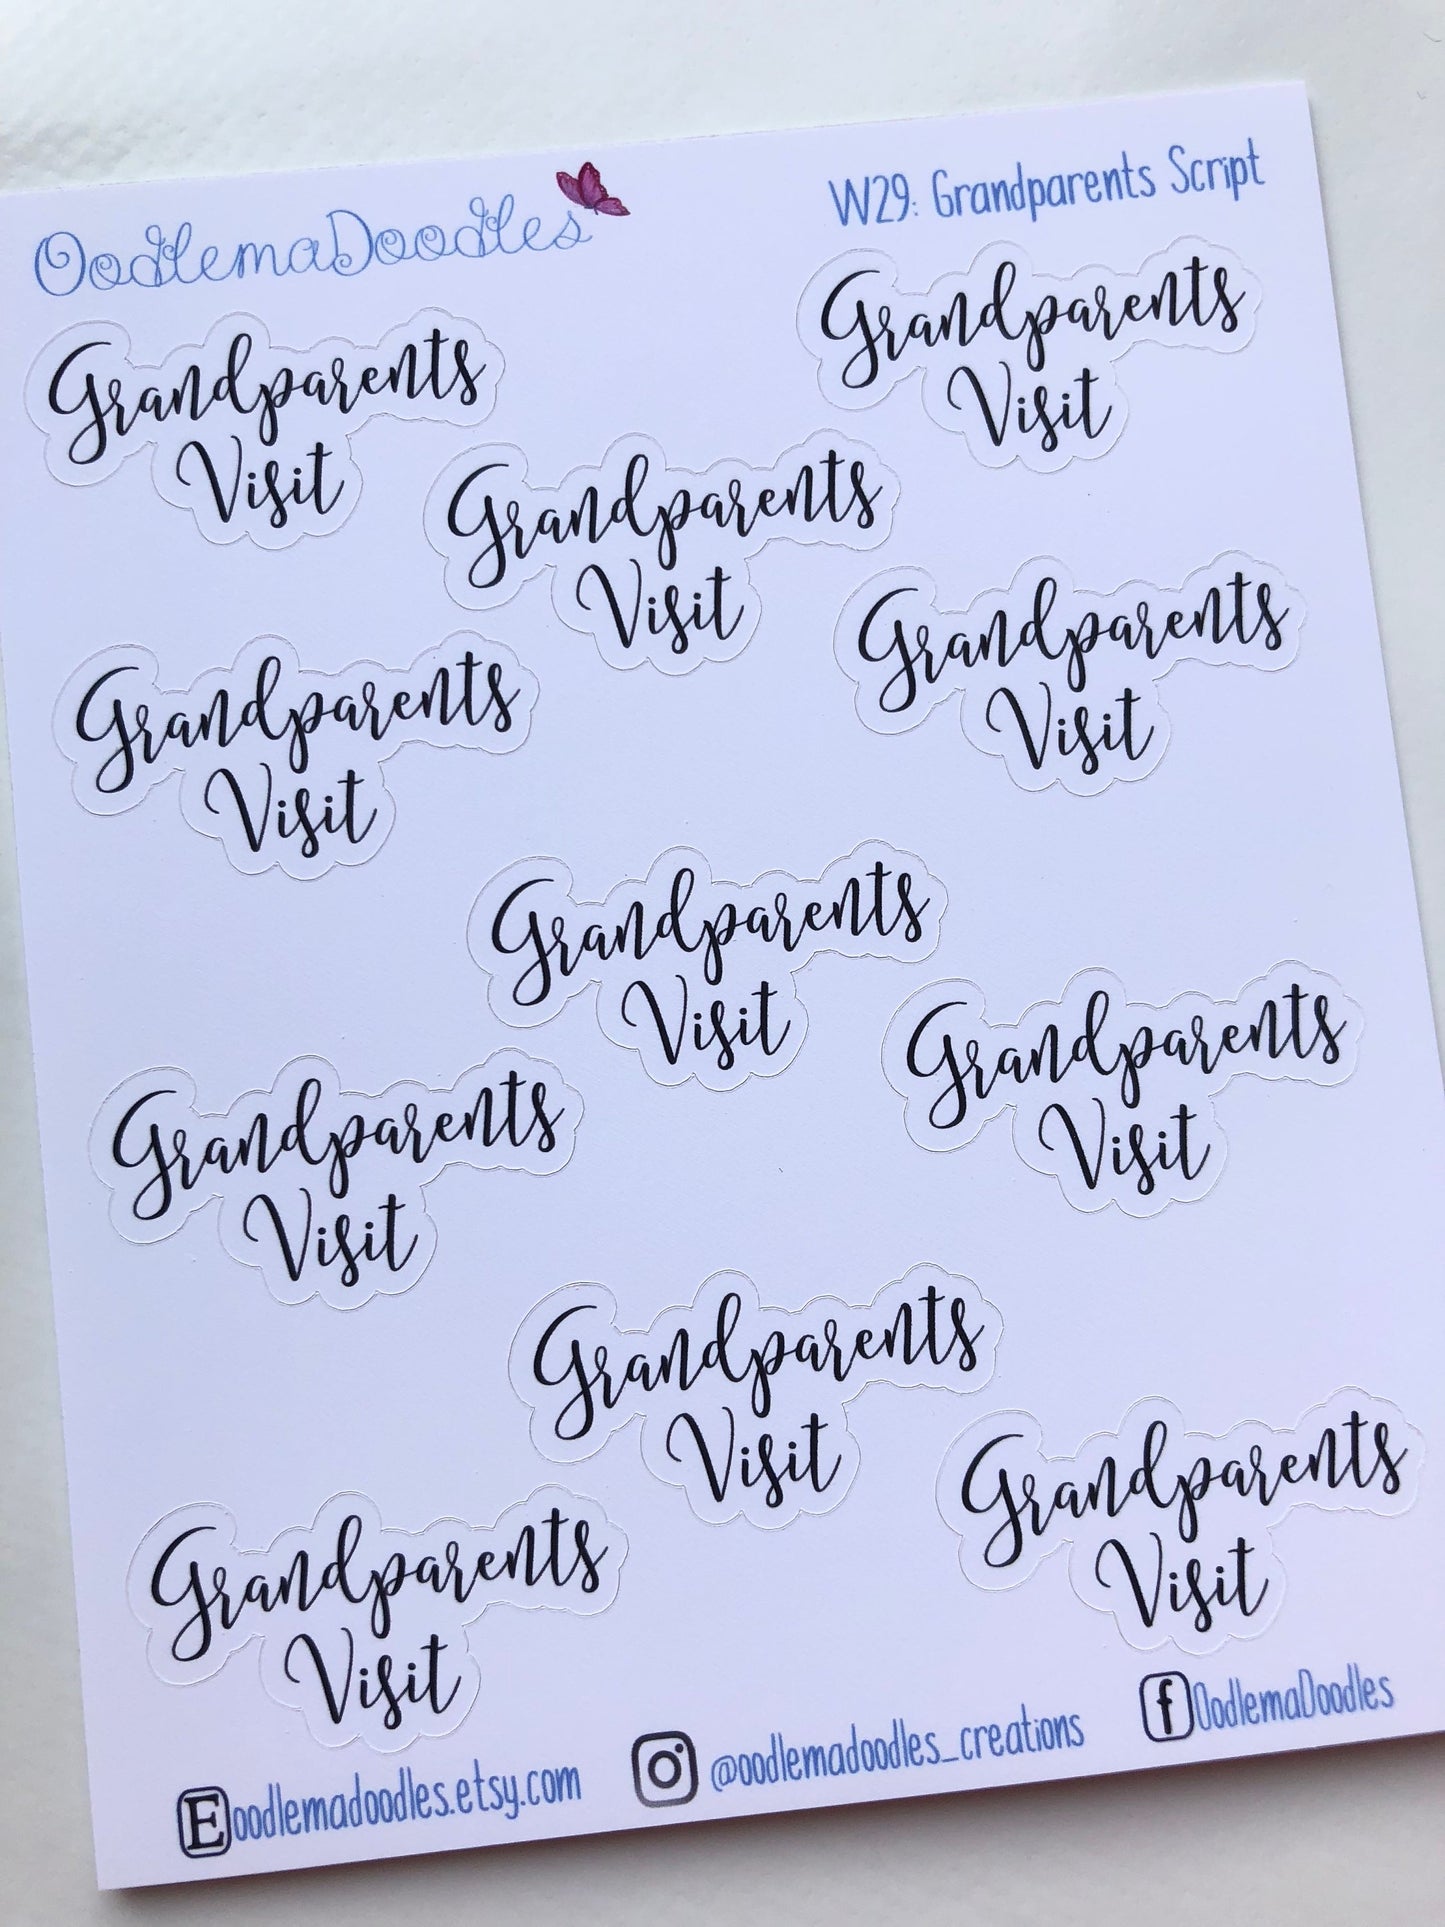 OodlemaDoodles
W29: Grandparents Script
Grandparents
Visit
Grandparents
Visit
Grandparents
Visit
Grandparents
Visit
Grandparents
Visit
Grandparents
Visit
Grandparents
Visit
Grandparents
Visit
Grandparents
Visit
Grandparents
Visit
Grandparents
Visit
E oodlemadoodles.etsy.com
@oodlemadoodles_creations
f OodlemaDoodles